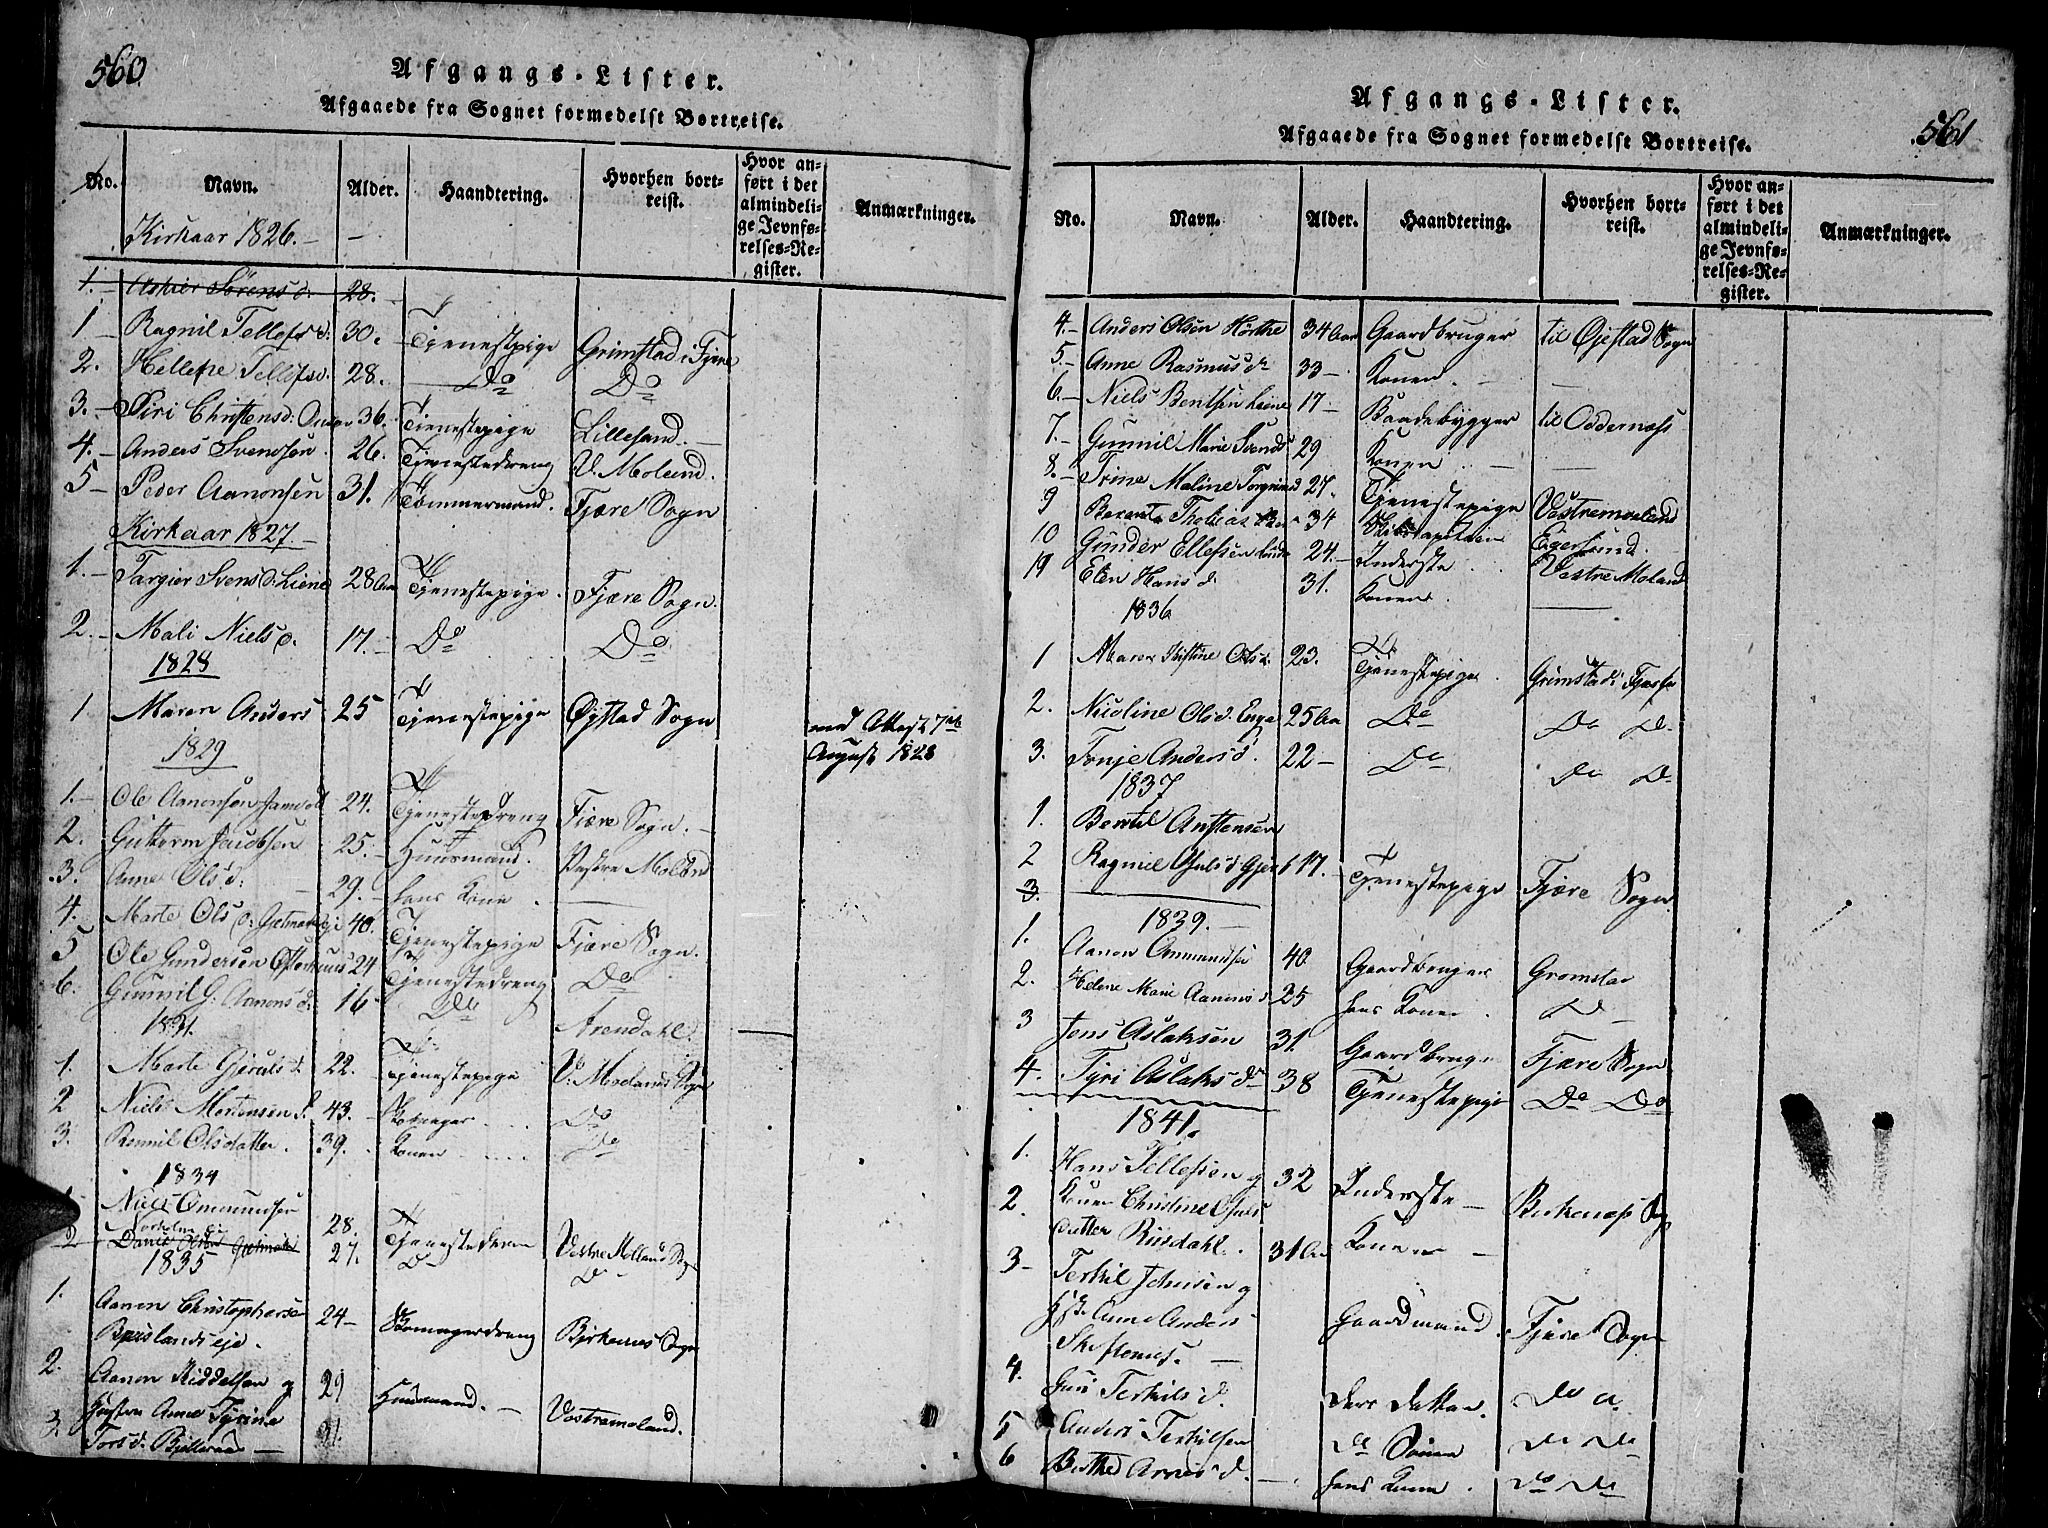 560
Afgangs-Lister.
Afgaaede fra Sognet formedelst Bortreise.
No. Navn. Alder. Haandtering. Hvorhen bortreist. Hvor anført i det almindelige Jevnførelses-Register. Anmærkninger.
Kirkaar 1826. –
1. – Sörens d. 28.
1 – Ragnil Tellefs d: 30. Tjenestpige Grimstad i Fjære
2. Tellefs d. 28. Do Do
3. – Siri Christens d: 36. Tienestepige Lillesand. –
4. – Anders Svenssön. 26. Tjenestedreng V. Molund.
5 – Peder Aanonsen 31. Tömmermand. Fjære Sogn
Kirkaar 1827. –
1. – Targier Svens d: Liene 28 Aar Tjenestepige. Fjære Sogn.
2. – Mali Niels d. 17. – Do Do
1828
1 Maren Anders 25 Tjenestepige Öystad Sogn med Attest 7de
August 1828
1829
1. – Ole Aanonsön 24. Tjenestedreng Fiære Sogn. –
2. Guttorm Jacobsen 25. – Huusmand. Vestre Moland
3. Anne Ols d: 29. – hans Kone. –
4. Marte Ols d: 40. Tjenestepige Fjære Sogn.
5 Ole Gundersen Osterhuus 24 Tjenestedreng Do
6. Gunnil G: Aanons d: 16 Do Arendahl.
1831.
1. Marte Gjeruls d. 22. Tjenestepige V. Molands Sogn
2 Niels Mortensen 43. – Do
3. Olsdatter. 39. Konen Do
1834
1 Niels Ommundsen 28. Tjenestedreng Vestre Molland Sog
2 27. Do Do
1835
1. Aanon Christophersen 24 – Skomagerdreng Birkenes Sogn
eje.
2. Aanon Kiddelsen og 29 Huusmand. – Vestremoland.
3. Hustru Anne Tyrine 21.
Tors d. –
561
Afgangs-Lister.
Afgaaede fra Sognet formedelst Bortreise.
No. Navn. Alder. Haandtering. Hvorhen bortreist. Hvor anført i det almindelige Jevnførelses-Register. Anmærkninger.
4. – Anders Olsön 34 Aar Gaardbruger til Øjestad Sogn
5. – Anne Rasmus dr 33 – Konen. –
6. – Niels Bentsen Liene 17 – Baadebygger til Oddernæss
7. – Gunnil Marie Svends 29 Konen –
8. – Trine Maline Torgrims d 27. Tjenestepige Vestremoland
9 34 Skibskapitain Egersund.
10 Gunder Ellefsen 24. – Inderste Vestre Moland
19 Elen Hans d. 31. Konen.
1836
1 Maren Kistine Ols d. 23. Tjenestepige Grimstad i Fjære
2. Nicoline Ols d. Enge 25 Aar Do Do Do
3. Tonje Anders d. 22 – Do Do Do
1837
1. Bentil Anstensen
2 Ragnil 17. – Tjenestepige Fjære Sogn.
3.
1839. –
1. Aanon Ommundsen 40 Gaardbruger Gromstad
2. Helene Marie Aanons d 25 hans Konen. Do
3 Jens Aslaksen 31. Gaardbruger Fjære Sogn
4. Tyri Aslaks dr 38 Tjenestepige Do Do
1841.
1. Hans Tellefsen og 32 Inderste – Birkenæs Sog
2. Konen Christine
datter Riisdahl. 31 Aar Konen –
3 – Terkil Jensen og Gaardmand. Fjære Sogn
Hst. Anne Anders
4. Guri Terkils d. Ders Datter. Do Do
5 Anders Terkilsen Do Sönen Do Do
6 Berthe Arnes d. – hans Konen. Do Do